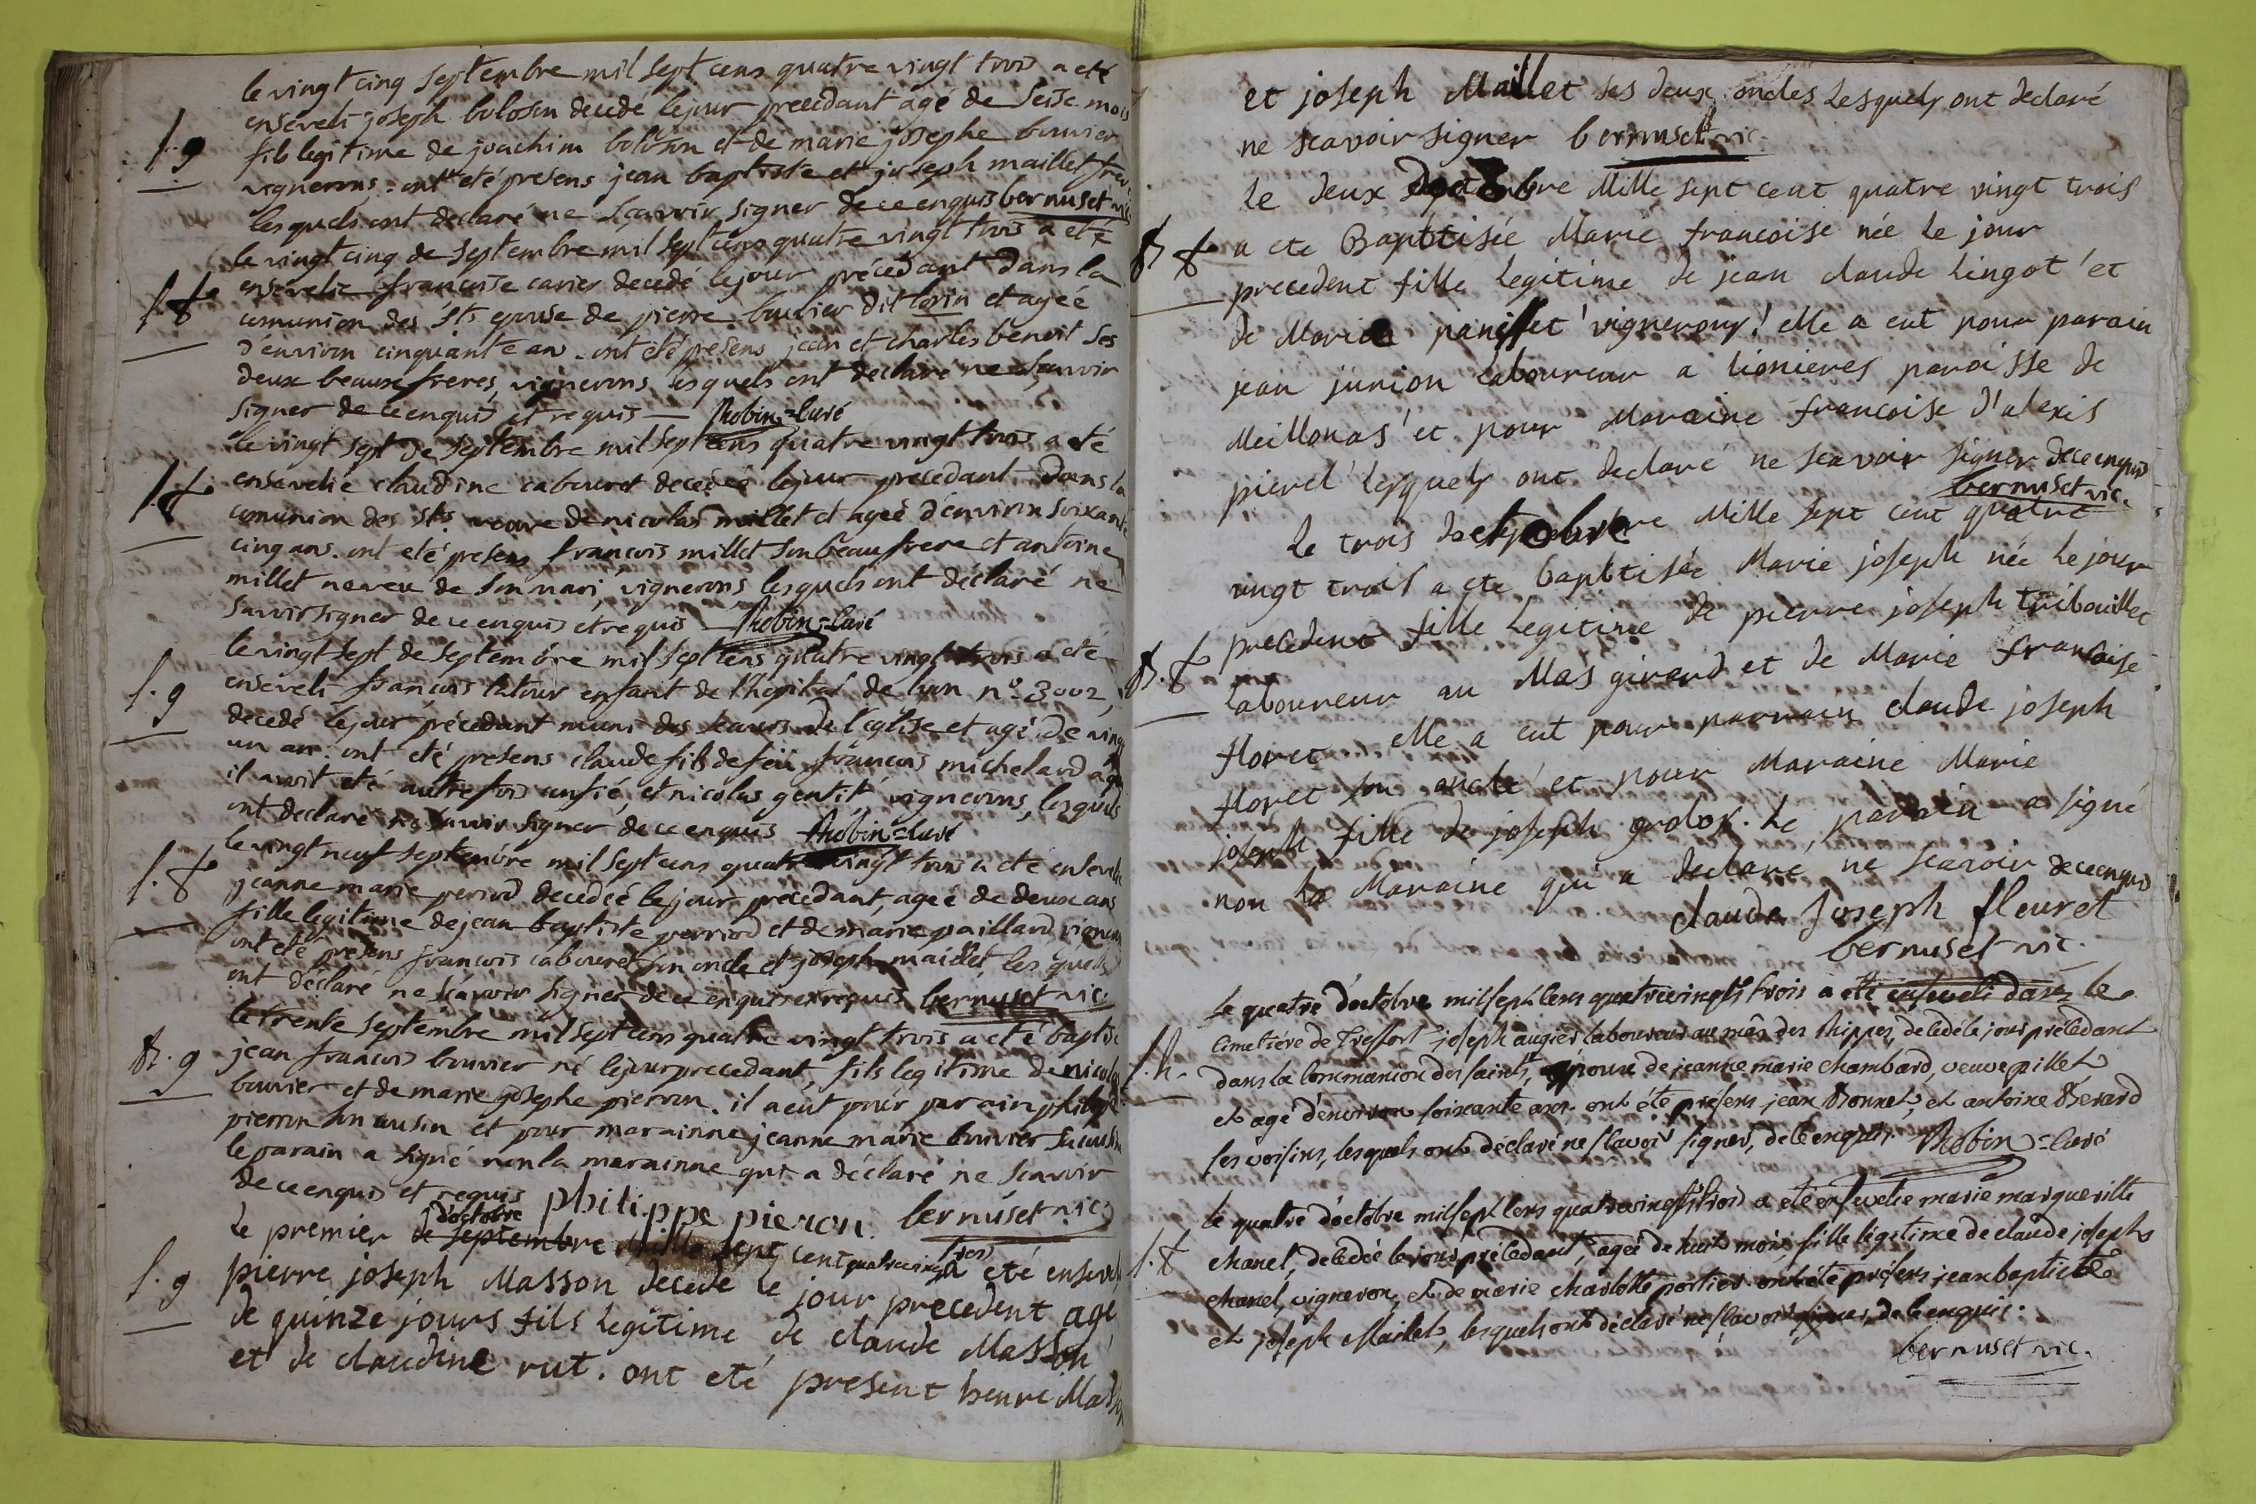 le vingt cinq septembre mil sept cens quatre vingt trois a eté
enseveli joseph bolosin decedé le jour precedant agé de seise mois
s. g
fils legitime de joachim boloson et de marie josephe bouvier
vignerons, ont eté presens jean baptiste et joseph maillet freres
lesquels ont declaré ne sçavoir signer de ce enquis bernuset vic.
le vingt cinq de septembre mil sept cens quatre vingt trois a eté
ensevelie francoise carier decedé le jour précédant dans la
s. f
comunion des sts epouse de pierre bouvier dit lorin et ageé
d'environ cinquante ans. ont eté presens jean et charles benoit ses
deux beaux freres, vignerons, lesquels ont declaré ne sçavoir
signer de ce enquis et requis — Robin = curé
le vingt sept de septembre mil sept cens quatre vingt trois a eté
s. f
ensevelie claudine cabouret decedeé le jour precedant dans la
comunion des sts veuve de nicolas millet et ageé d'environ soixante
cinq ans. ont eté presens francois millet son beau frere et antoine
millet neveu de son mari, vignerons lesquels ont déclaré ne
savoir signer de ce enquis et requis — Robin = curé
le vingt sept de septembre mil sept cens quatre vingt trois a eté
s. g
enseveli françois latour enfant de l'hopital de lion n° 3002,
decedé le jour précedant muni des secours de l'église et agé de vingt
un an. ont eté presens claude fils de feu françois michelard à qui
il avoit eté autrefois confié, et nicolas gentit, vignerons, lesquels
ont declaré ne savoir signer de ce enquis Robin = curé
le vingt neuf septembre mil sept cens quatre vingt trois a eté enseveli
s. f
jeanne marie period decedeé le jour precedant, ageé de deux ans
fille legitime de jean baptiste perriod et de marie paillard vignerons
ont eté presens francois cabouret son oncle et joseph maillet, lesquels
ont déclaré ne sçavoir signer de ce enquis et requis bernuset vic.
le trente septembre mil sept cens quatre vingt trois a eté baptisé
B. g
jean francois bouvier né le jour precedant, fils legitime de nicolas
bouvier et de marie josephe pieron. il a eut pour parain philippe
pieron son cusin et pour marainne jeanne marie bouvier sa cusine
le parain a signé non la marainne qui a déclaré ne sçavoir
de ce enquis et requis philippe pieron bernuset vic
d'octobre
le premier de septembre mille sept cent quatrevingt trois a eté enseveli
s. g
pierre joseph Masson decedé le jour precedent agé
de quinze jours fils legitime de claude Masson
et de claudine rut. ont eté present henri Masson
et joseph Maillet ses deux oncles lesquels ont declaré
ne scavoir signer bernuset vic.
le deux 8bre Mille sept cent quatre vingt trois
B. f
a ete Baptisée Marie francoise née le jour
precedent fille legitime de jean claude lingot et
de Marie panisset vignerons! elle a eut pour parain
jean junion laboureur a lionieres paroisse de
Meillonas et pour Maraine francoise d'alexis
pierel lesquels ont declaré ne scavoir signer de ce enquis
bernuset vic.
le trois d'octobre Mille sept cent quatre
vingt trois a ete baptisée Marie joseph née le jour
precedent fille legitime de pierre joseph tribouillet
B. f
laboureur au Mas girard et de Marie francoise
floret elle a eut pour parrain claude joseph
floret son oncle et pour Maraine Marie
joseph fille de joseph grobos. le parain a signé
non la Maraine qui a declaré ne scavoir de ce enquis
claude Joseph fleuret
bernuset vic.
le quatre d'octobre mil sept cens quatrevingts trois a été enseveli dans le
cimetiére de Treffort joseph augier laboureur au mâs des thippes, decedé le jour précedant
s. h.
dans la communion des saints, époux de jeanne marie chambard, veuve pillet
et agé d'environ soixante ans. ont été presens jean Bonnet, et antoine Berard
ses voisins, lesquels ont déclaré ne sçavoir signer, de ce enquis Robin = curé
le quatre d'octobre mil sept cens quatrevingts trois a été ensevelie marie margueritte
s. f
chanel, decedée le jour précedant, agée de huit mois, fille légitime de claude josephs
chanel, vigneron, et de marie charlotte portier. ont été présens jean baptiste
et joseph Mailet, lesquels ont déclaré ne sçavoir signer, de ce enquis.
bernuset vic.